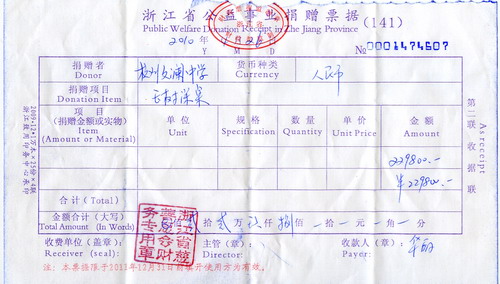 浙江省公益事业捐赠票据 (141)
Public Welfare Donation Receipt in Zhe Jiang Province
2010 Y M D No 0001474607
捐赠者 杭州 中学 货币种类 人民币
Donor Currency
捐赠项目
Donation Item
项目 单位 规格 数量 单价 金额
(捐赠金额或实物)
Item Unit Specification Quantity Unit Price Amount
(Amount or Material)
229800.-
¥229800.-
合计(Total)
金额合计(大写) 拾贰万玖仟捌佰一拾一元一角一分
Total Amount (In Words)
收费单位(盖章): 主管(章): 收款人(章):
Receiver (seal) Director: Payer:
注:本票据限于2013年12月31日前填开使用方为有效。
第二联收据联
As receipt